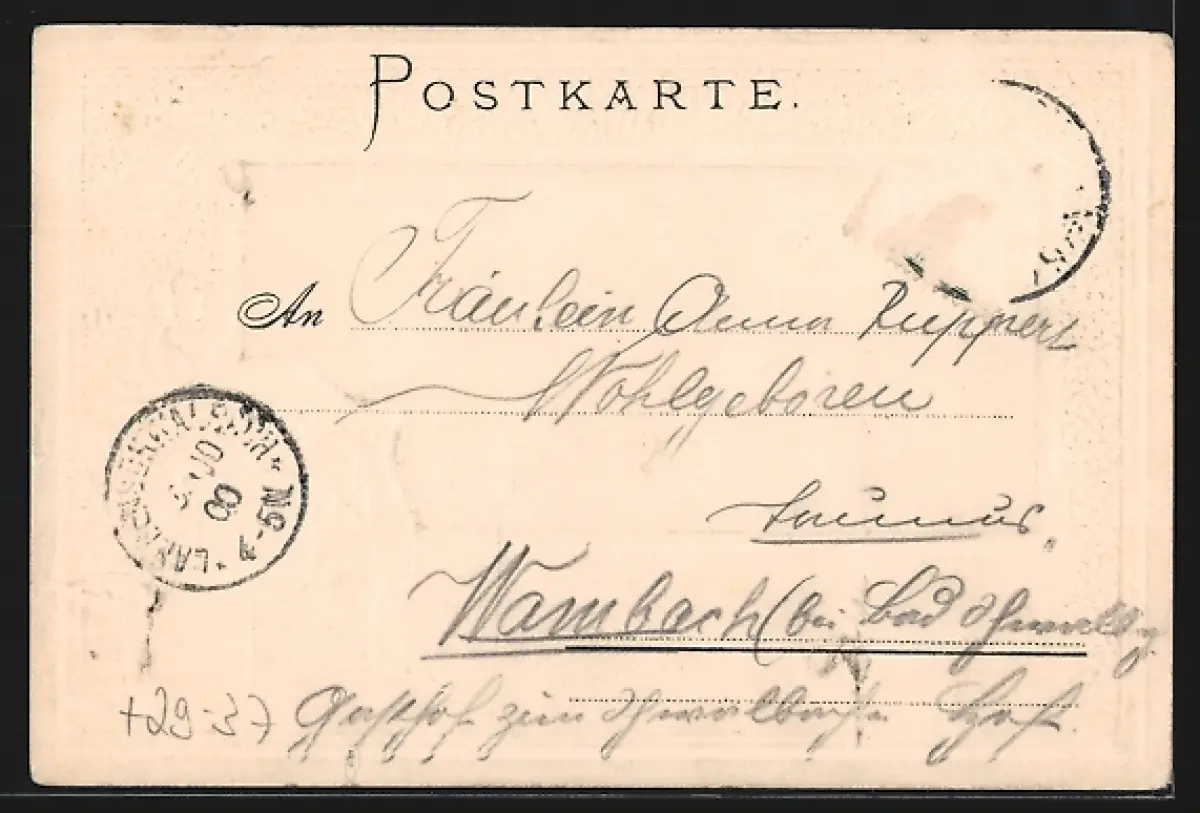 POSTKARTE.
An Fräulein Anna Ruppert
Wohlgeboren
Taunus.
Wambach (bei Bad Schwalb
Gasthof zum Schwalbacher Hof.
LANGENSCHWALBACH
00
5-6N
+29-37